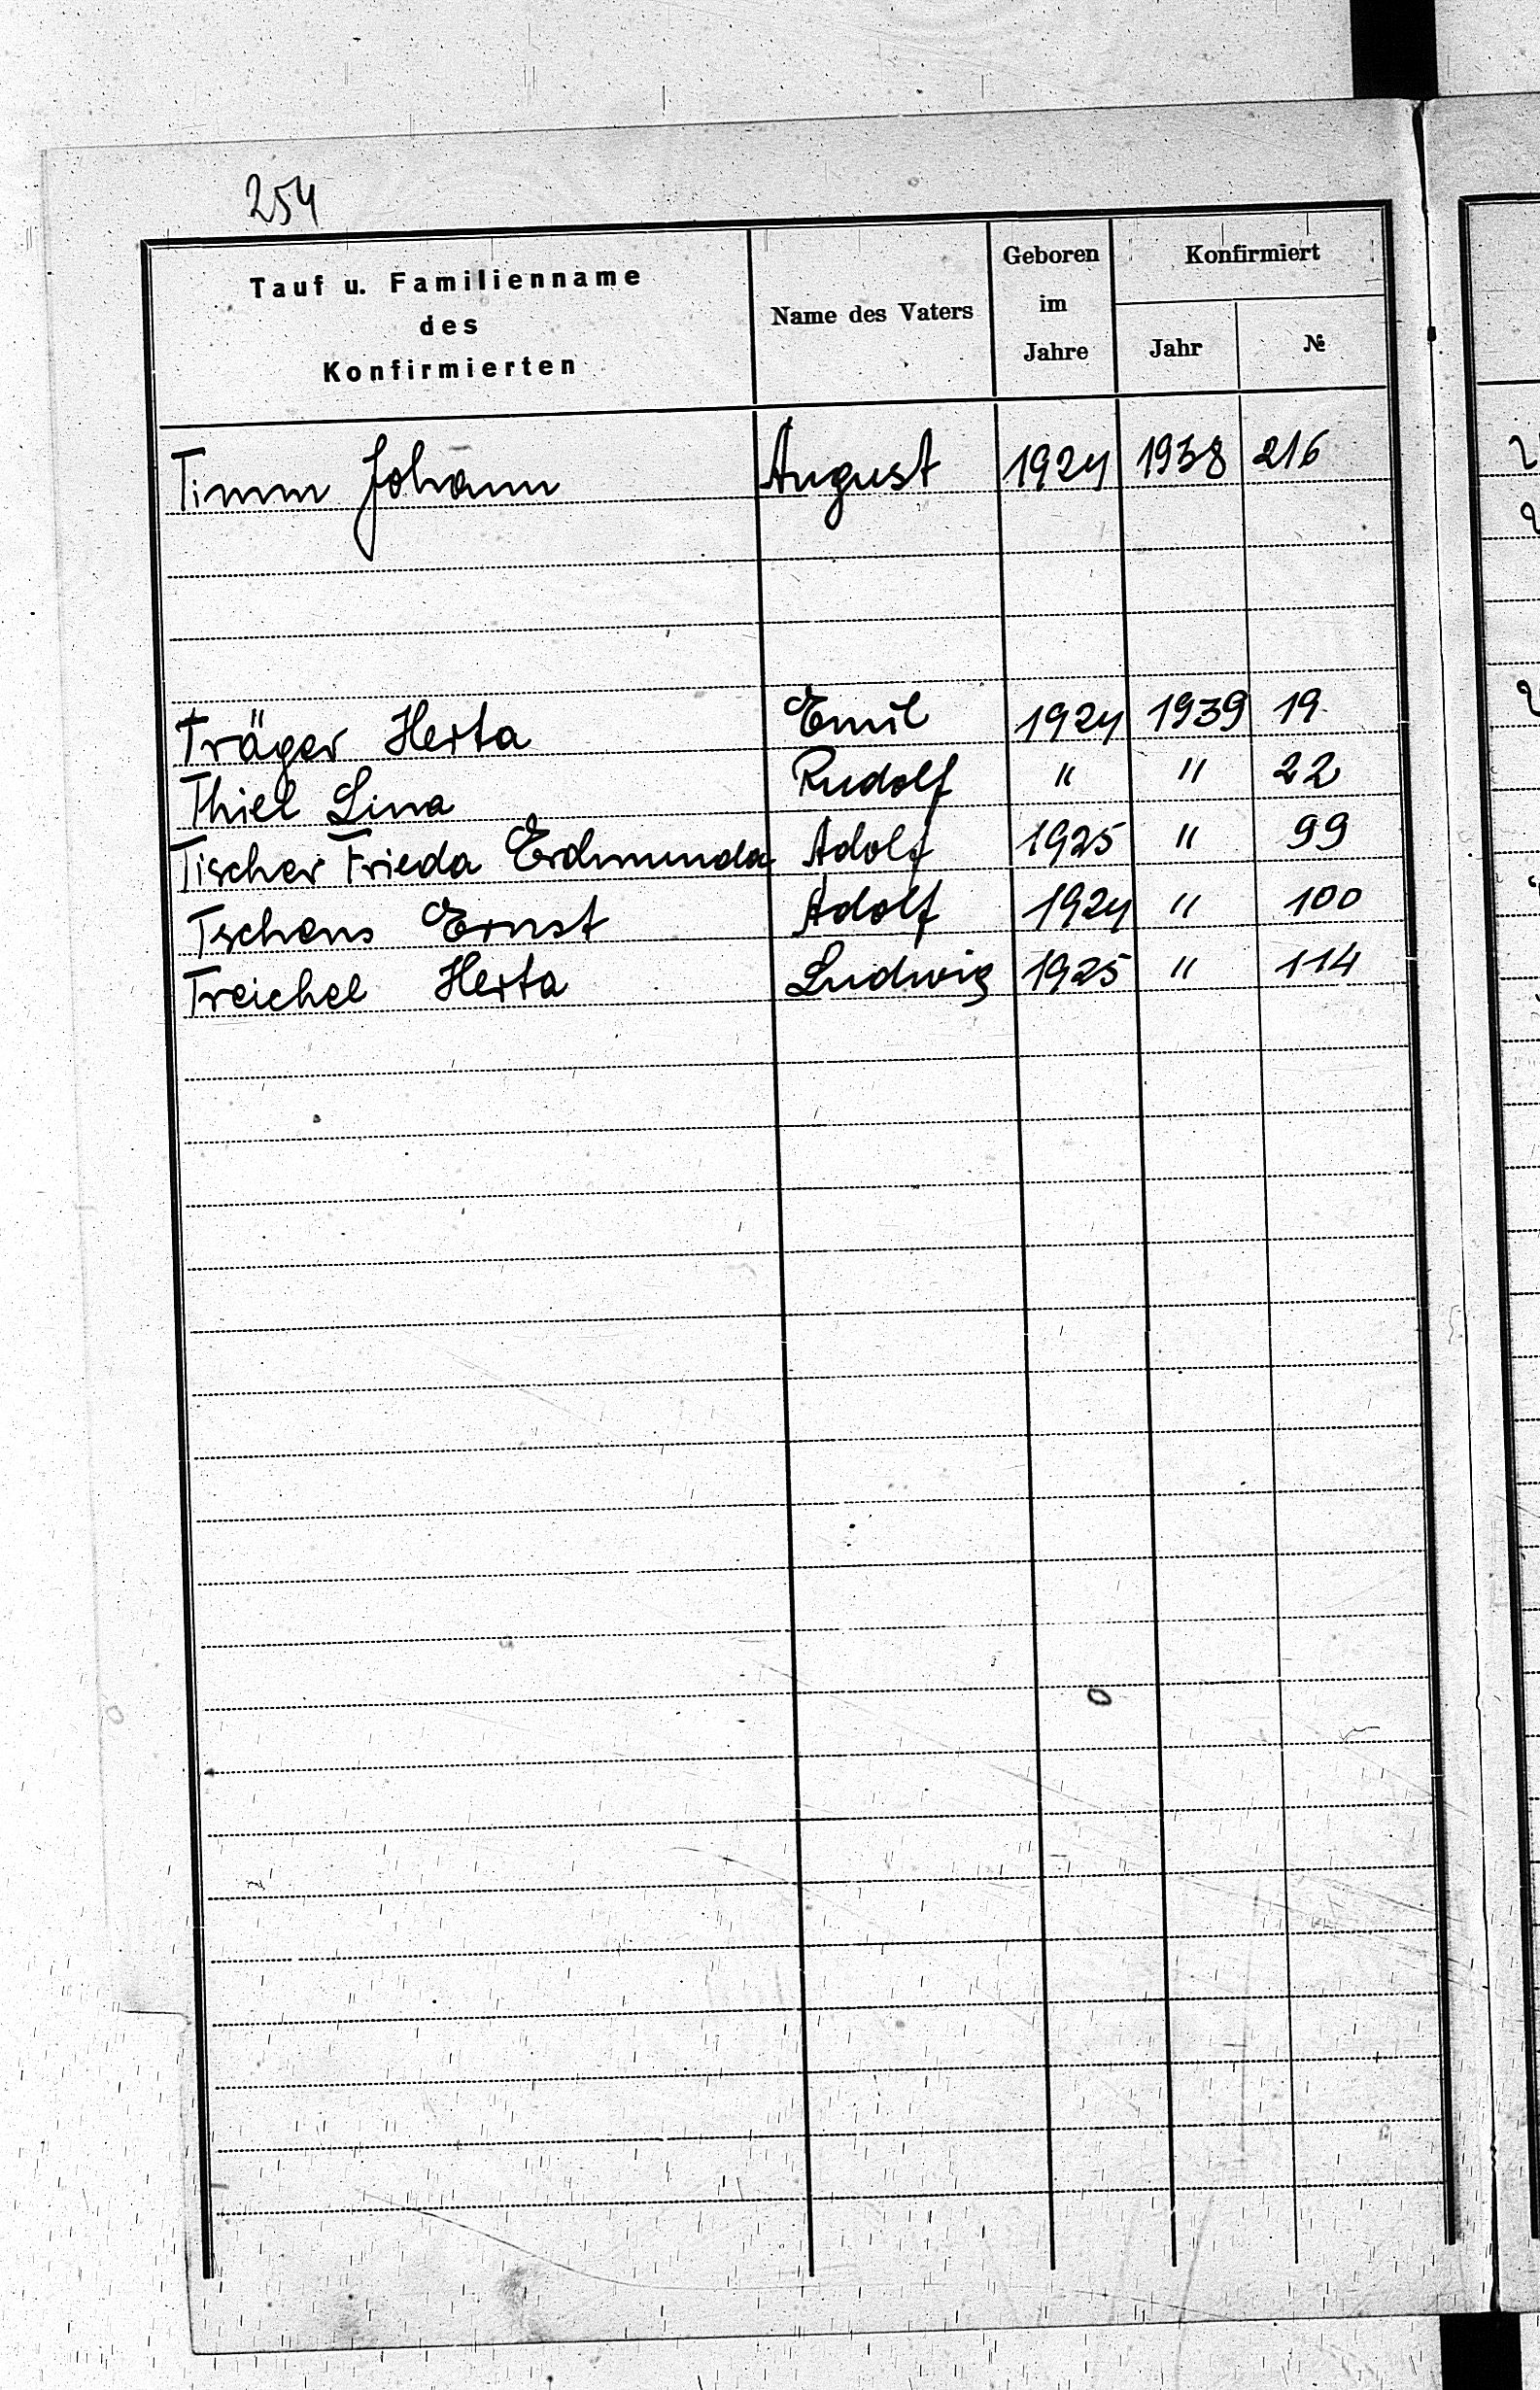 254
Tauf u. Familienname des Konfirmierten | Name des Vaters | Geboren im Jahre | Konfirmiert Jahr | №
Timm Johann | August | 1924 | 1938 | 216
Träger Herta | Emil | 1924 | 1939 | 19
Thiel Lina | Rudolf | " | " | 22
Tischer Frieda Erdmunda | Adolf | 1925 | " | 99
Tschens Ernst | Adolf | 1924 | " | 100
Treichel Herta | Ludwig | 1925 | " | 114